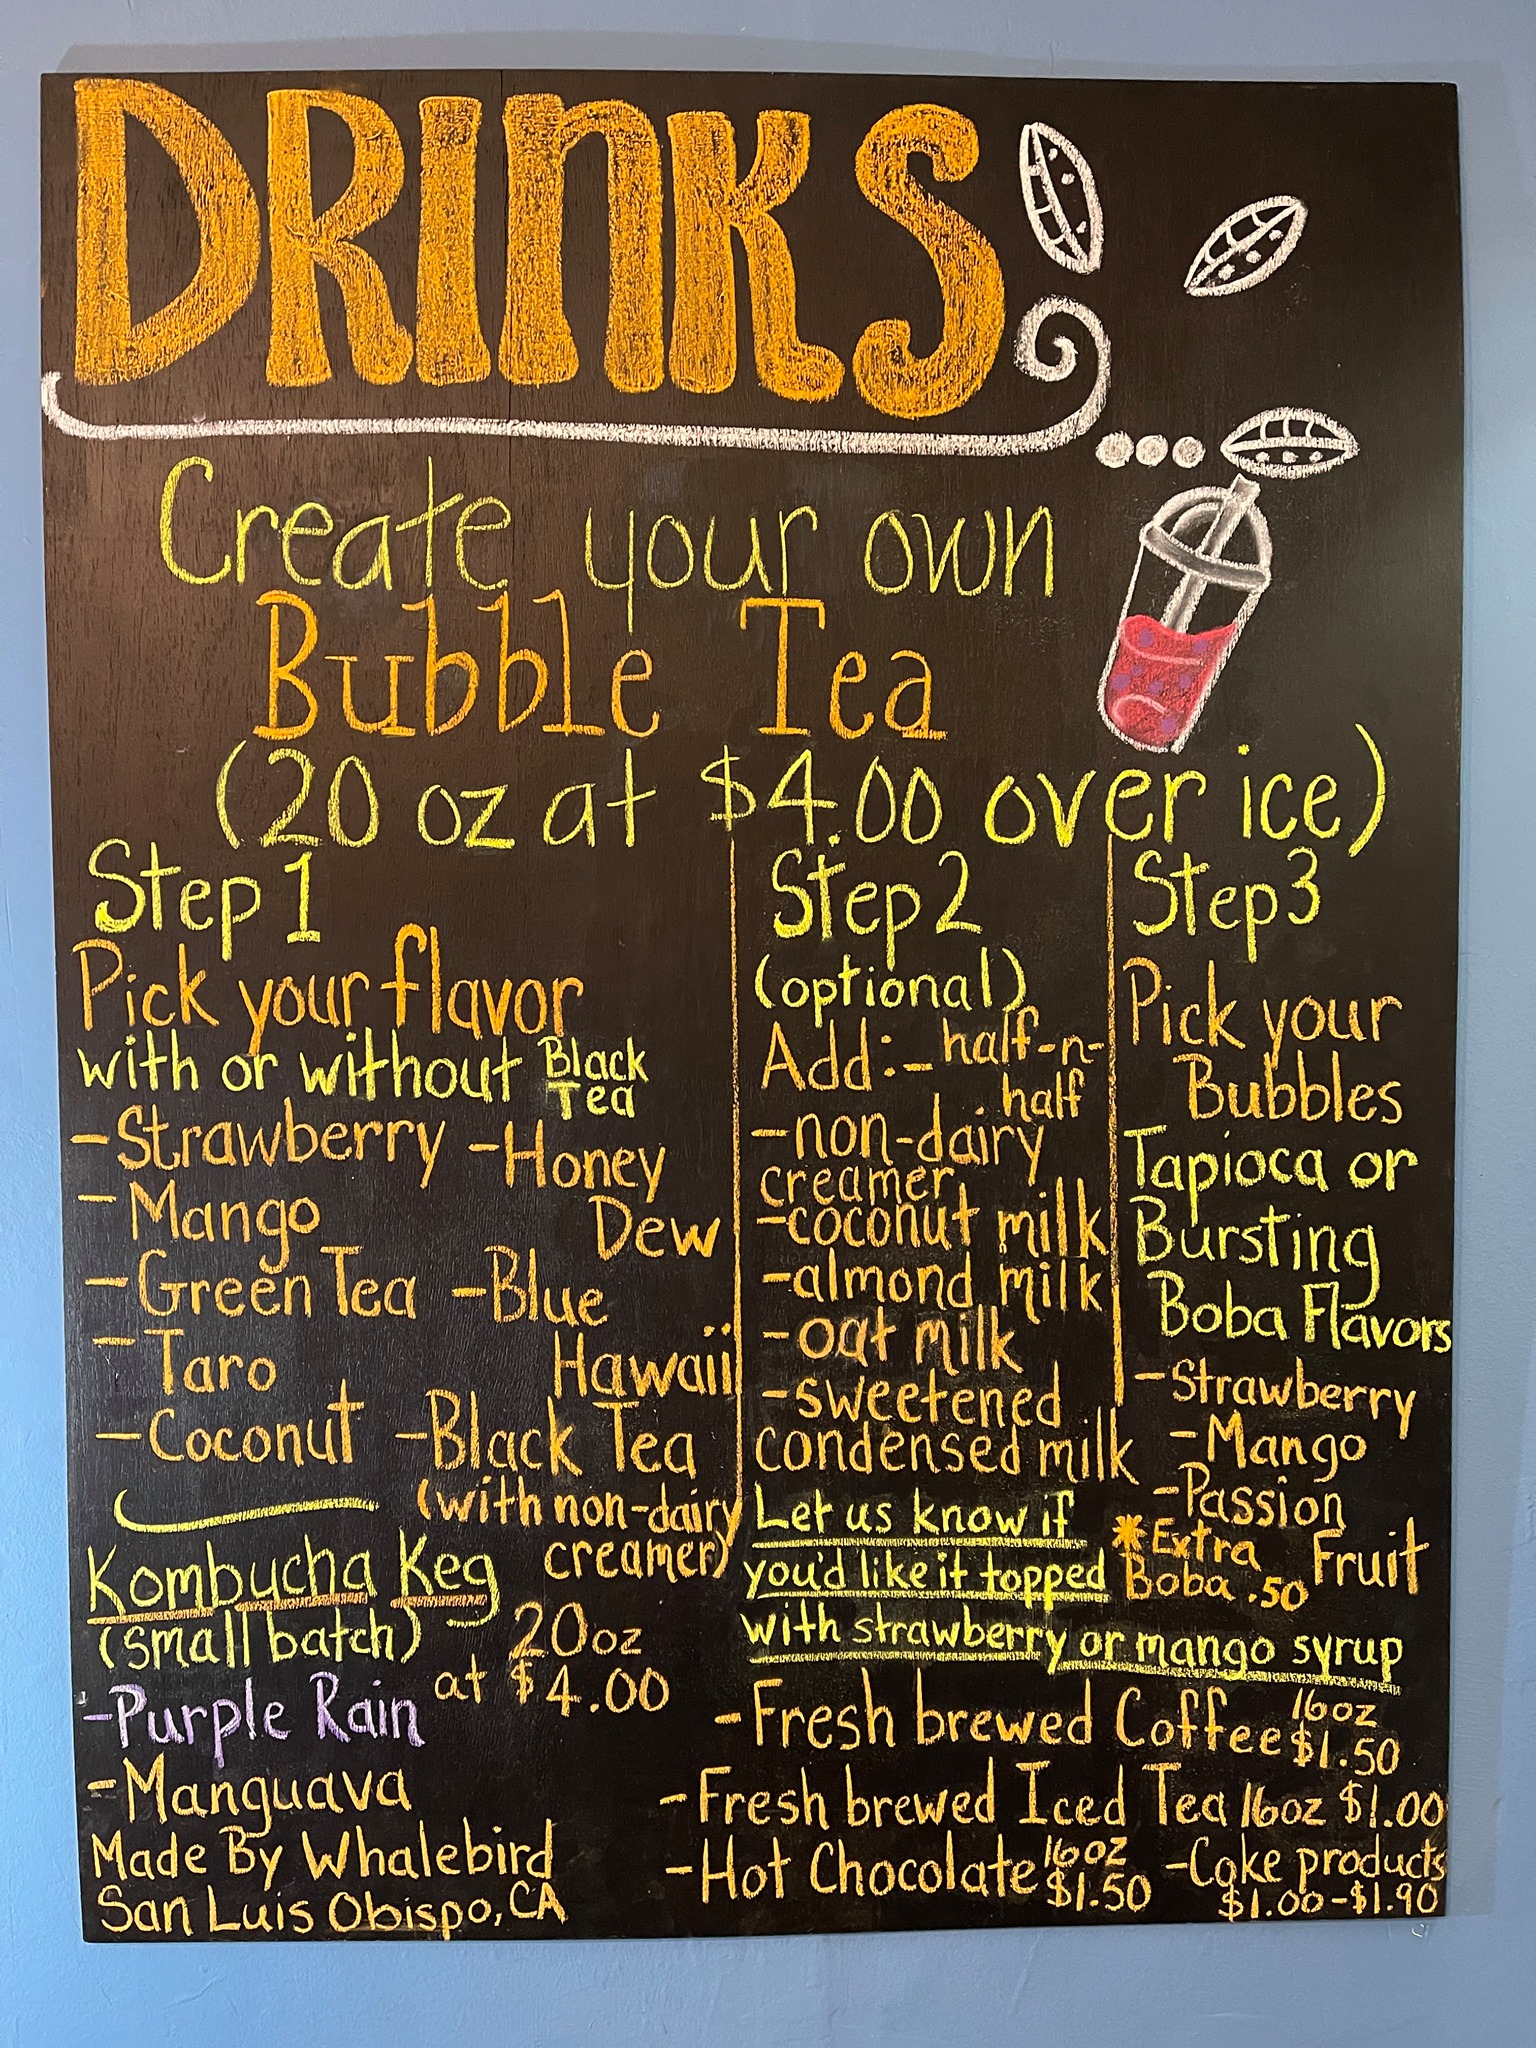 DRINKS
Create your own
Bubble Tea
(20 oz at $4.00 over ice)
Step 1
Pick your flavor
with or without Black Tea
- Strawberry
- Mango
- Green Tea
- Taro
- Coconut
- Honey
Dew
- Blue
Hawaii
- Black Tea
(with non-dairy
creamer)
Step 2
(optional)
Add: - half-n-
half
- non-dairy
creamer
- coconut milk
- almond milk
- oat milk
- sweetened
condensed milk
Let us know if
you'd like it topped
with strawberry or mango syrup
Step 3
Pick your
Bubbles
Tapioca or
Bursting
Boba Flavors
- Strawberry
- Mango
- Passion
Fruit
* Extra
Boba .50
Kombucha Keg
(small batch)
20oz
at $4.00
- Purple Rain
- Manguava
Made By Whalebird
San Luis Obispo, CA
- Fresh brewed Coffee 16oz $1.50
- Fresh brewed Iced Tea 16oz $1.00
- Hot Chocolate 16oz $1.50
- Coke products
$1.00-$1.90